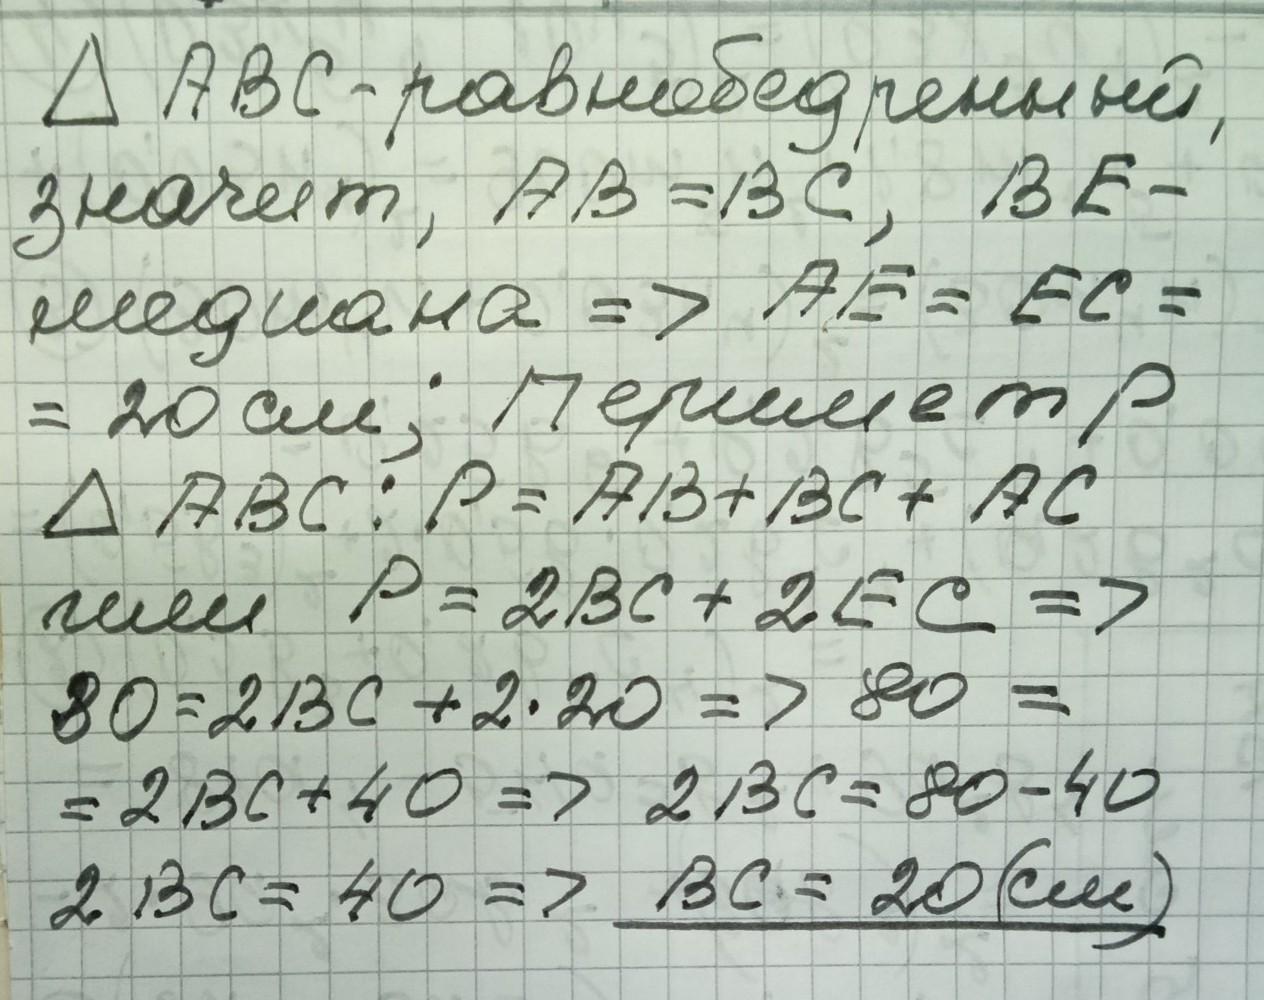 △ ABC - равнобедренный,
значит, AB = BC, BE -
медиана => AE = EC =
= 20 см; Периметр
△ ABC : P = AB + BC + AC
или P = 2BC + 2EC =>
80 = 2BC + 2·20 => 80 =
= 2BC + 40 => 2BC = 80 - 40
2BC = 40 => BC = 20 (см)